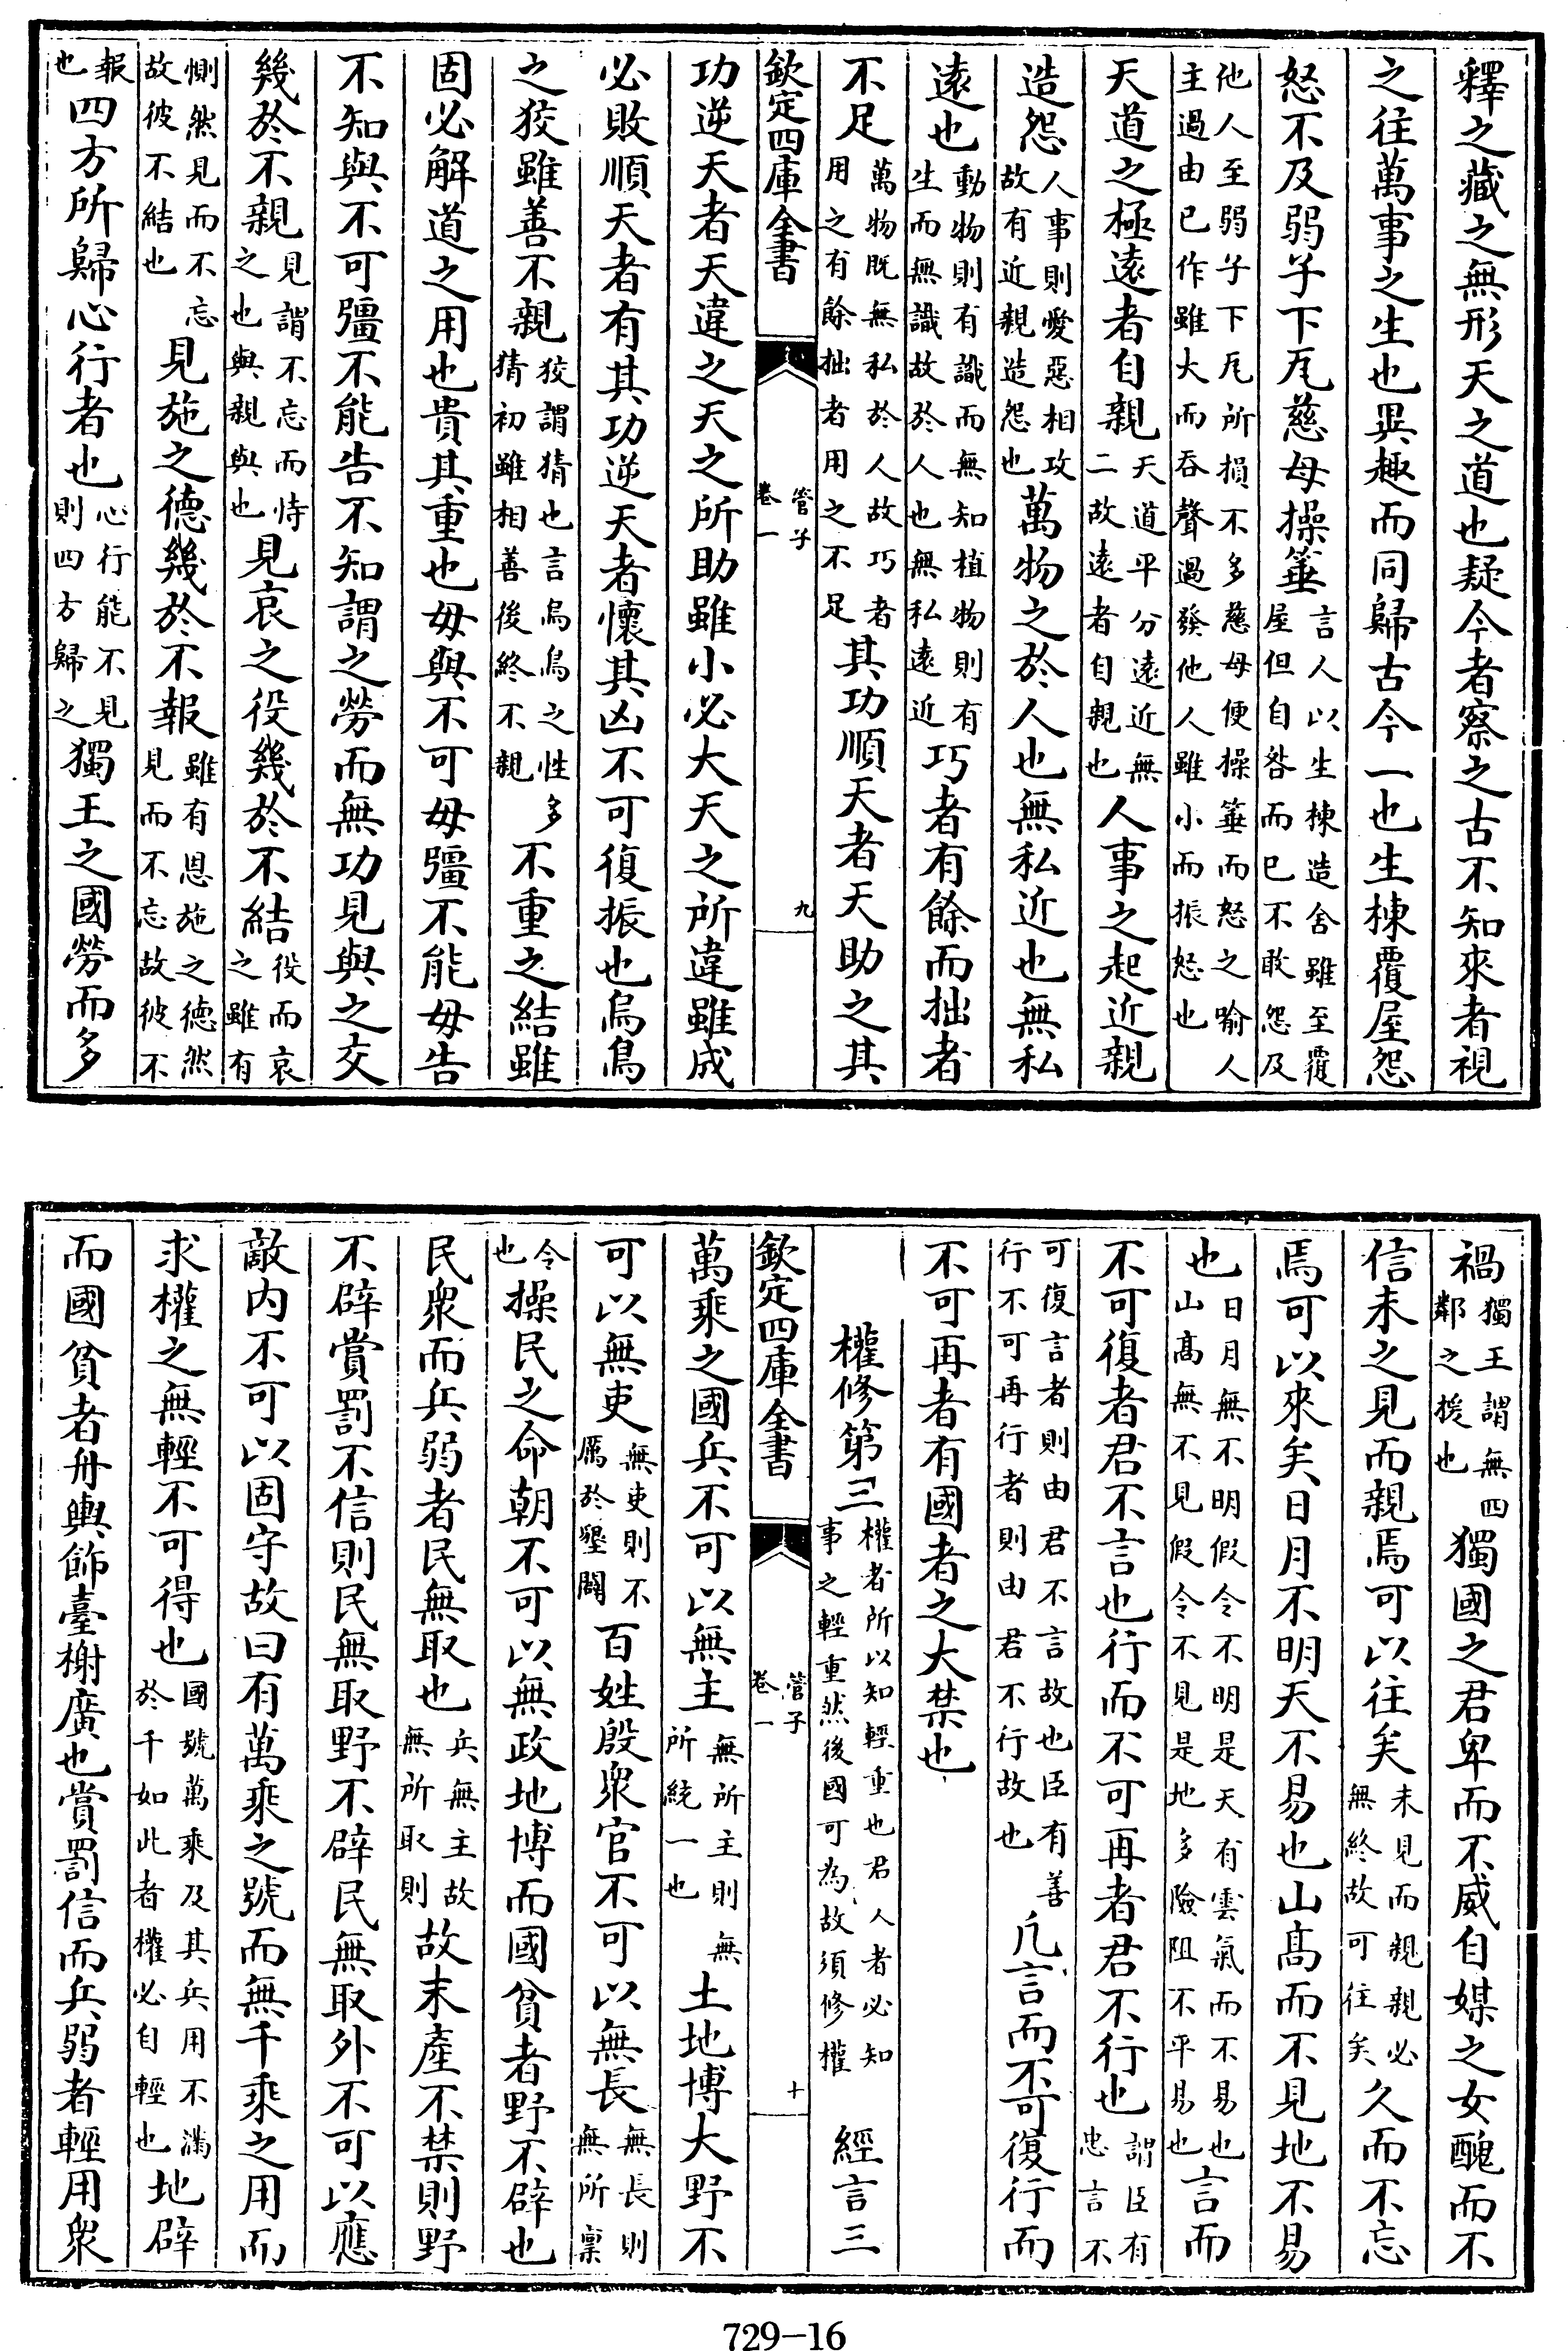 釋之藏之無形天之道也疑今者察之古不知來者視
之往萬事之生也異趣而同歸古今一也生棟覆屋怨
怒不及弱子下瓦慈母操箠言人以生棟造舍雖至覆屋但自咎而已不敢怨及
他人至弱子下瓦所損不多慈母便操箠而怒之喻人主過由已作雖大而吞聲過發他人雖小而振怒也
天道之極遠者自親天道平分遠近無二故遠者自親也人事之起近親
造怨人事則愛惡相攻故有近親造怨也萬物之於人也無私近也無私
遠也動物則有識而無知植物則有生而無識故於人也無私遠近巧者有餘而拙者
不足萬物既無私於人故巧者用之有餘拙者用之不足其功順天者天助之其
欽定四庫全書
管子
卷一
九
功逆天者天違之天之所助雖小必大天之所違雖成
必敗順天者有其功逆天者懷其凶不可復振也烏鳥
之狡雖善不親狡謂猜也言烏鳥之性多猜初雖相善後終不親不重之結雖
固必解道之用也貴其重也毋與不可毋彊不能毋告
不知與不可彊不能告不知謂之勞而無功見與之交
幾於不親見謂不忘而恃之也與親與也見哀之役幾於不結役而哀之雖有
惻然見而不忘故彼不結也見施之德幾於不報雖有恩施之德然見而不忘故彼不
報也四方所歸心行者也心行能不見則四方歸之獨王之國勞而多
禍獨王謂無四鄰之援也獨國之君卑而不威自媒之女醜而不
信未之見而親焉可以往矣未見而親親必無終故可往矣久而不忘
焉可以來矣日月不明天不易也山髙而不見地不易
也日月無不明假令不明是天有雲氣而不易也山髙無不見假令不見是地多險阻不平易也言而
不可復者君不言也行而不可再者君不行也謂臣有忠言不
可復言者則由君不言故也臣有善行不可再行者則由君不行故也凡言而不可復行而
不可再者有國者之大禁也
權修第三權者所以知輕重也君人者必知事之輕重然後國可為故須修權　經言三
欽定四庫全書
管子
卷一
十
萬乘之國兵不可以無主無所主則無所統一也土地博大野不
可以無吏無吏則不厲於墾闢百姓殷衆官不可以無長無長則無所禀
令也操民之命朝不可以無政地博而國貧者野不辟也
民衆而兵弱者民無取也兵無主故無所取則故末產不禁則野
不辟賞罰不信則民無取野不辟民無取外不可以應
敵内不可以固守故曰有萬乘之號而無千乘之用而
求權之無輕不可得也國號萬乘及其兵用不滿於千如此者權必自輕也地辟
而國貧者舟輿飾臺榭廣也賞罰信而兵弱者輕用衆
729-16